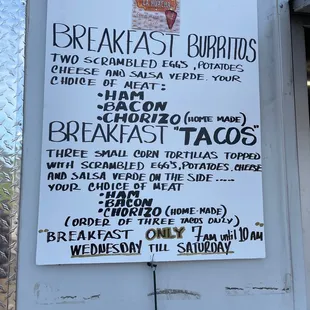 LA HUACHA
BREAKFAST BURRITOS
TWO SCRAMBLED EGG'S, POTATOES
CHEESE AND SALSA VERDE. YOUR
CHOICE OF MEAT:
•HAM
•BACON
•CHORIZO (HOME MADE)
BREAKFAST "TACOS"
THREE SMALL CORN TORTILLAS TOPPED
WITH SCRAMBLED EGG'S, POTATOES, CHEESE
AND SALSA VERDE ON THE SIDE .....
YOUR CHOICE OF MEAT
•HAM
•BACON
•CHORIZO (HOME-MADE)
(ORDER OF THREE TACOS ONLY)
*BREAKFAST ONLY 7AM UNTIL 10 AM
WEDNESDAY TILL SATURDAY